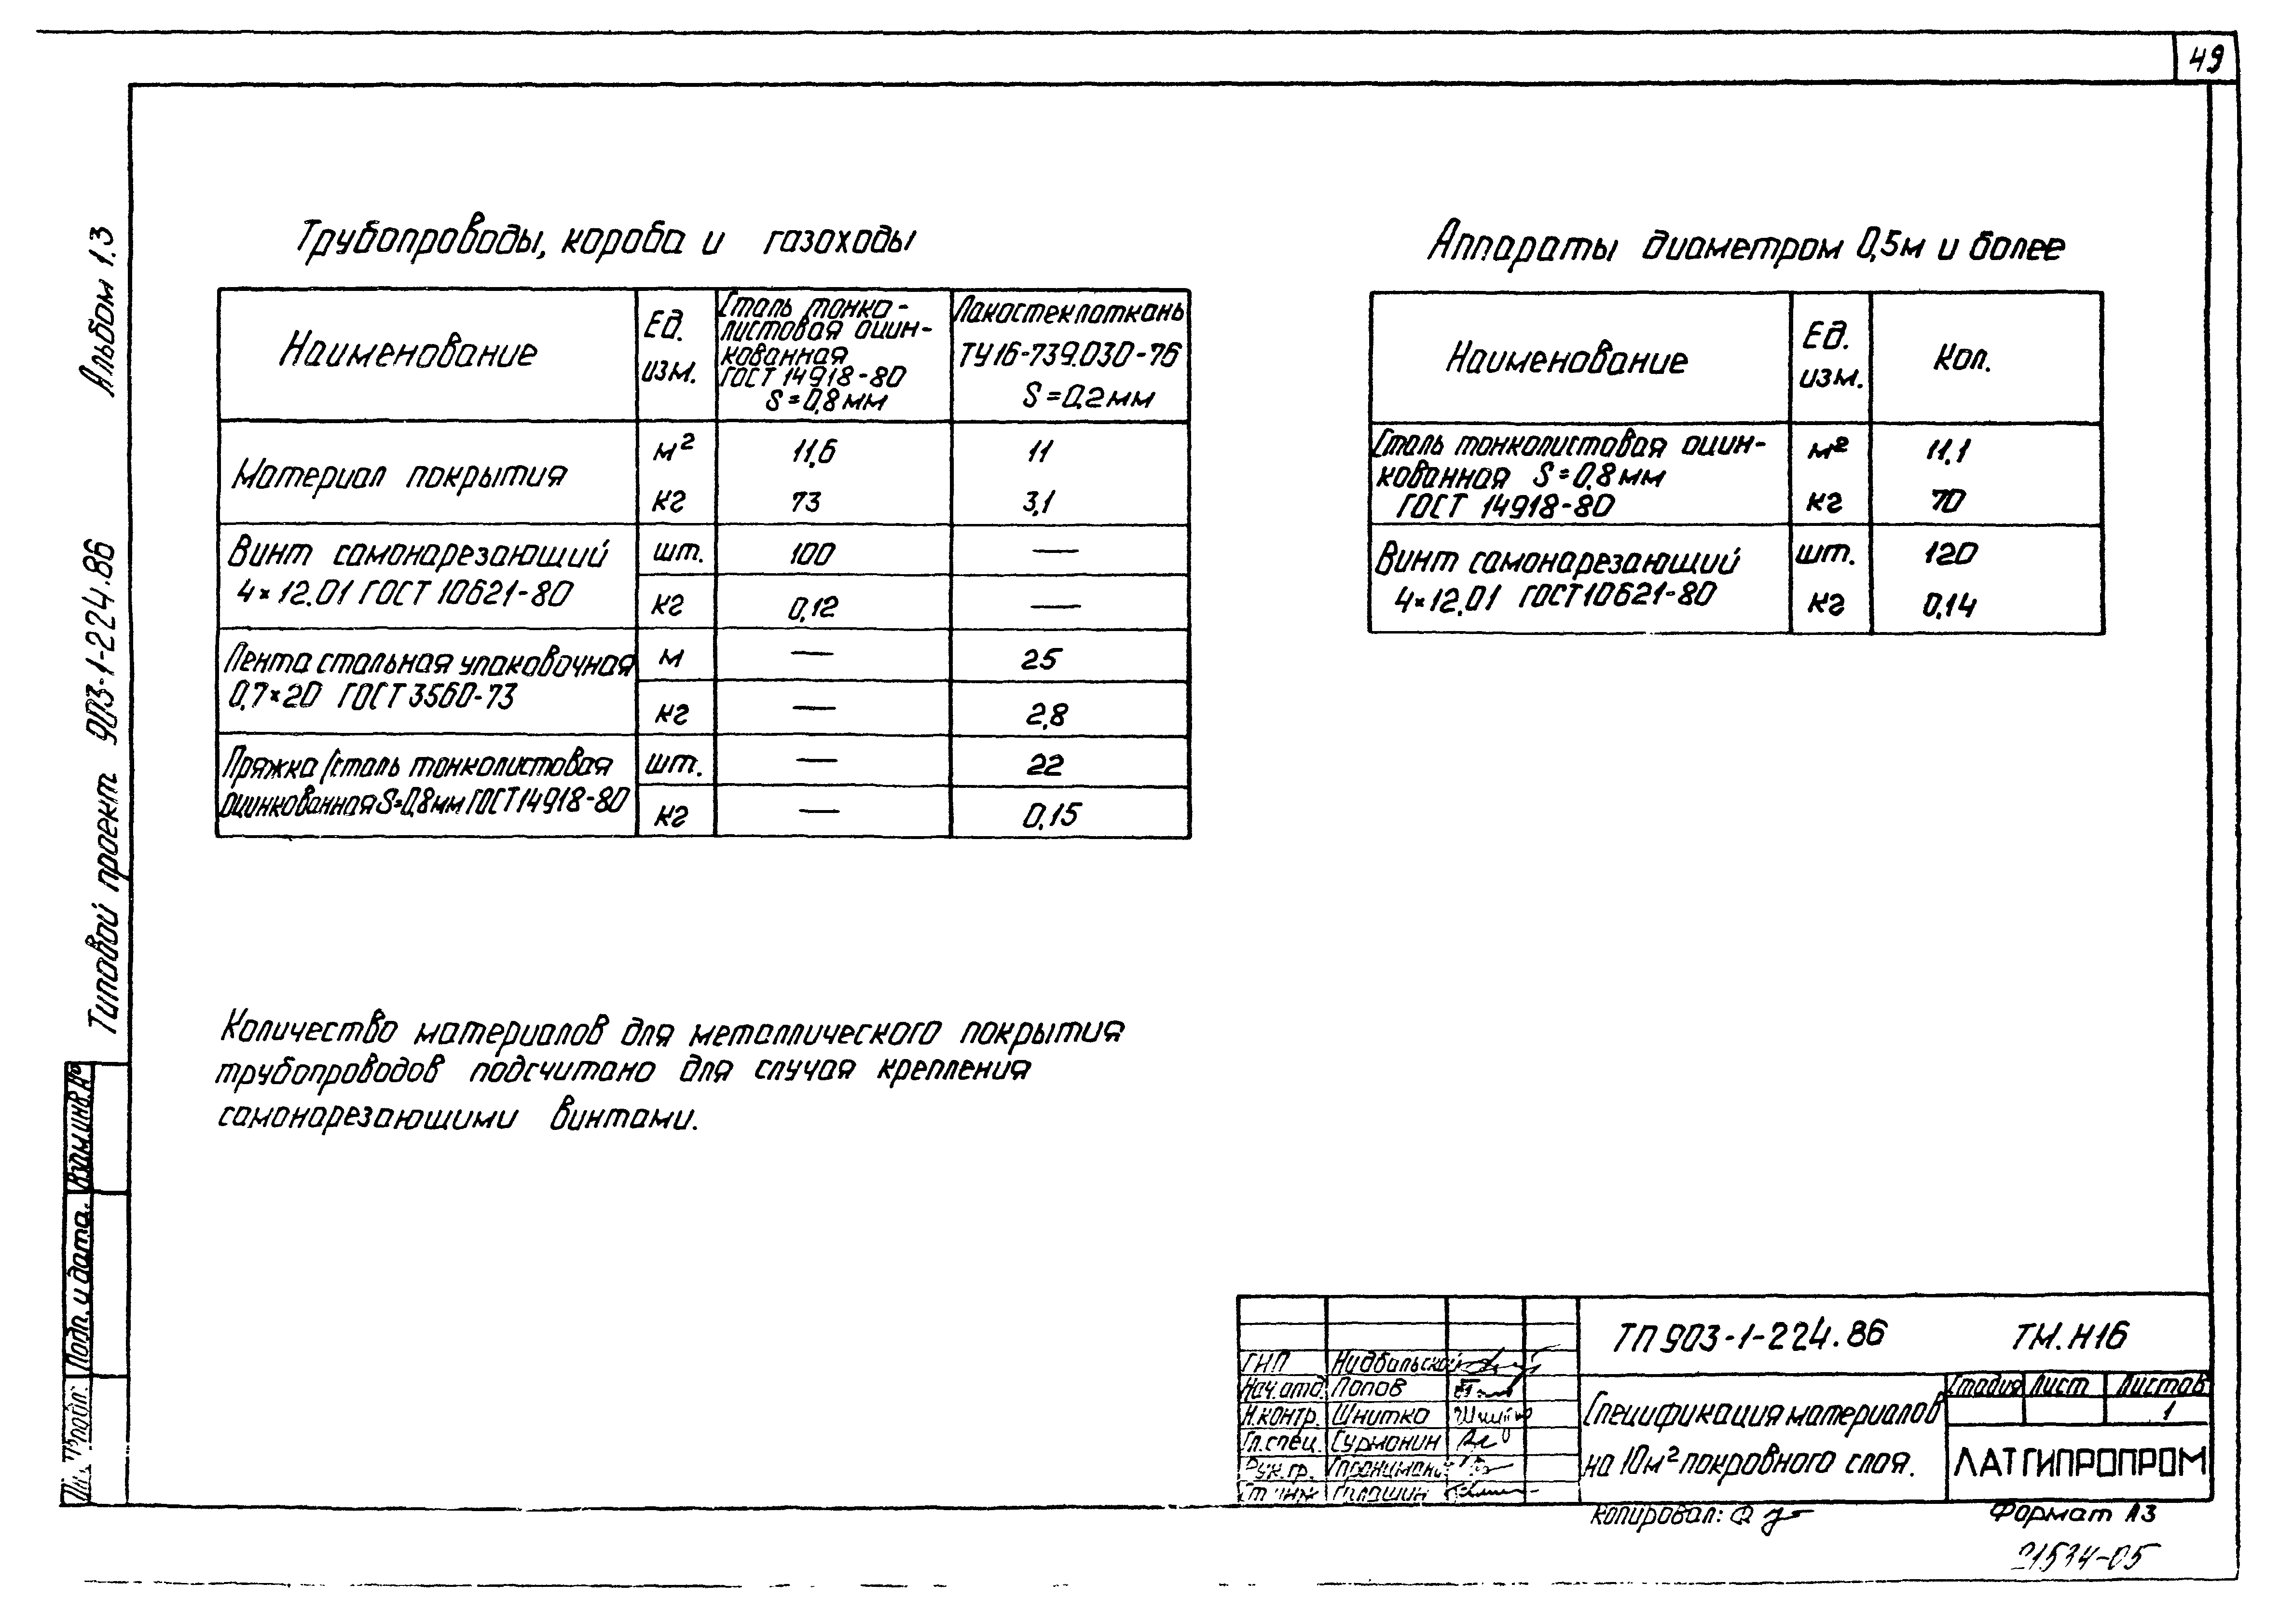 49
Альбом 1.3
Типовой проект 903-1-224.86
Взам.инв.№
Подп. и дата.
Трубопроводы, короба и газоходы
Наименование
Ед.
изм.
Сталь тонко-
листовая оцин-
кованная
ГОСТ 14918-80
S=0,8мм
Лакостеклоткань
ТУ16-739.030-76
S=0,2мм
Материал покрытия
м² 11,6 11
кг 73 3,1
Винт самонарезающий
4×12.01 ГОСТ 10621-80
шт. 100 —
кг 0,12 —
Лента стальная упаковочная
0,7×20 ГОСТ 3560-73
м — 25
кг — 2,8
Пряжка /сталь тонколистовая
оцинкованная S=0,8мм ГОСТ14918-80
шт. — 22
кг — 0,15
Аппараты диаметром 0,5м и более
Наименование
Ед.
изм.
Кол.
Сталь тонколистовая оцин-
кованная S=0,8мм
ГОСТ 14918-80
м² 11,1
кг 70
Винт самонарезающий
4×12.01 ГОСТ10621-80
шт. 120
кг 0,14
Количество материалов для металлического покрытия
трубопроводов подсчитано для случая крепления
самонарезающими винтами.
ТП 903-1-224.86 ТМ.Н16
ГИП
Нач.отд. Попов
Н.контр. Шнитко
Гл.спец. Сурмонин
Рук.гр.
Спецификация материалов
на 10м² покровного слоя.
Стадия Лист Листов
1
ЛАТГИПРОПРОМ
Копировал:
Формат А3
21534-05